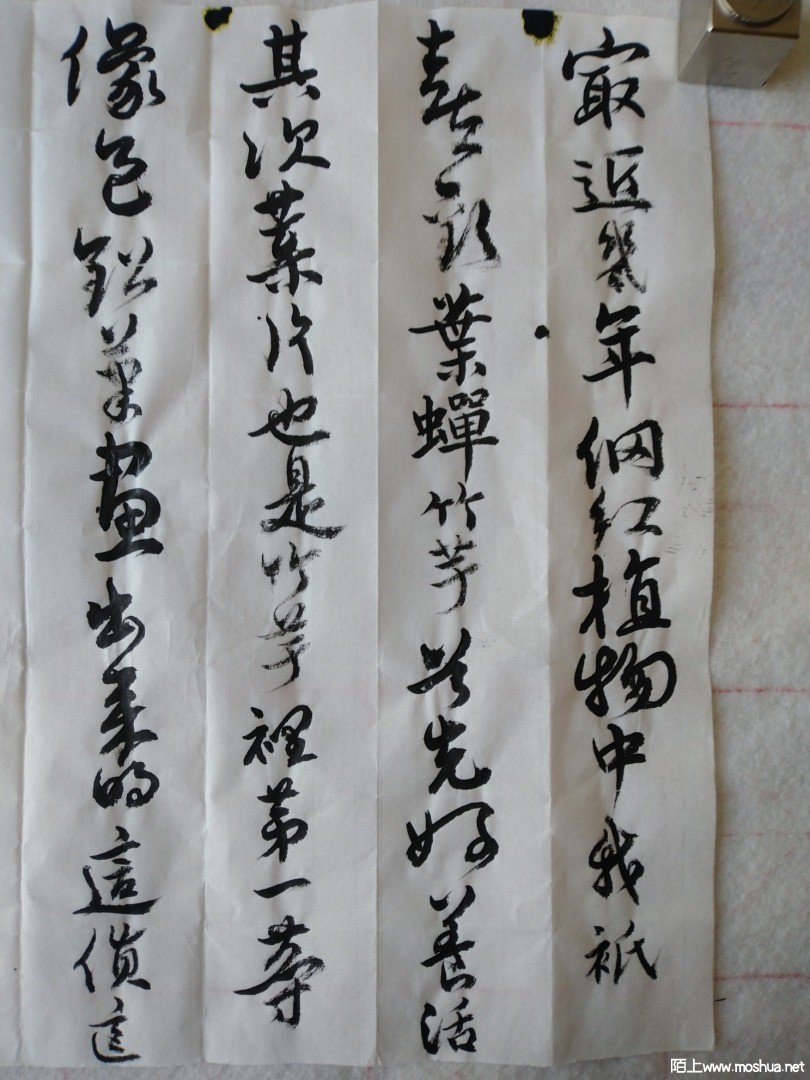 寂近幾年網紅植物中我祇
喜歡葉蟬竹芋首先好養活
其次葉片也是竹芋裡第一等
像色鉛筆畫出來的這價這
陌上www.moshua.net